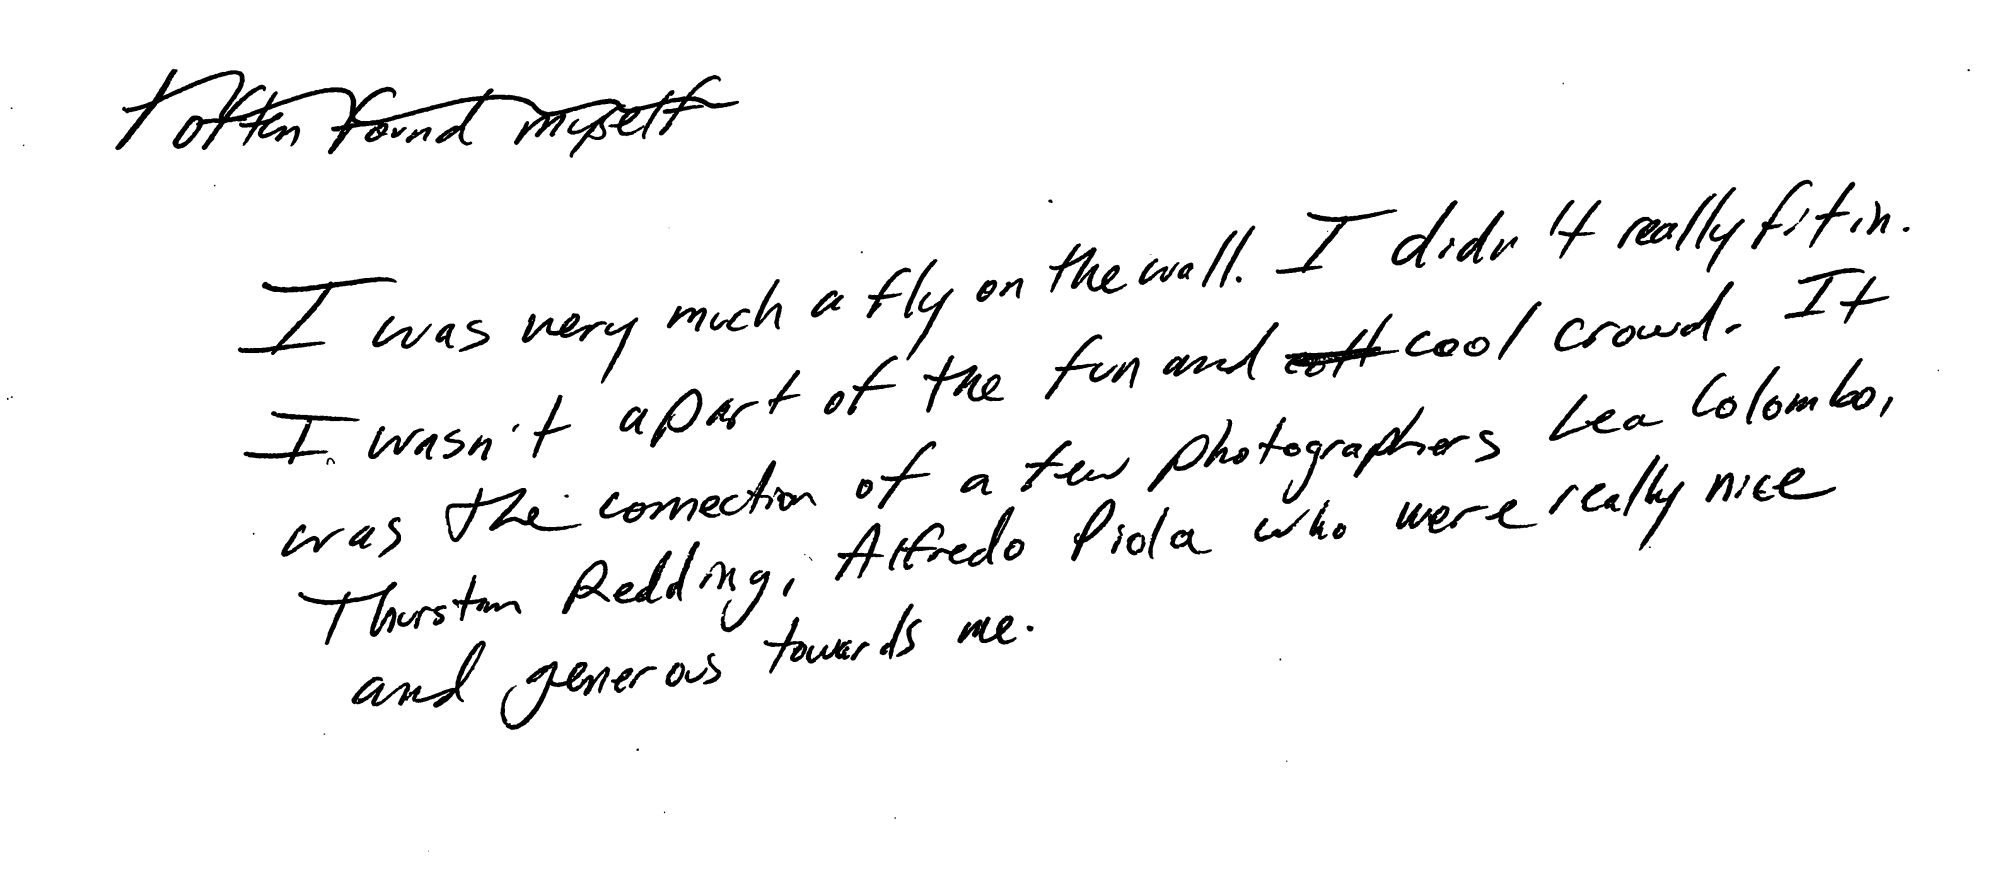 I often found myself
I was very much a fly on the wall. I didn't really fit in.
I wasn't a part of the fun and cool crowd. It
was the connection of a few photographers Lea Colombo,
Thurstan Redding, Alfredo Piola who were really nice
and generous towards me.